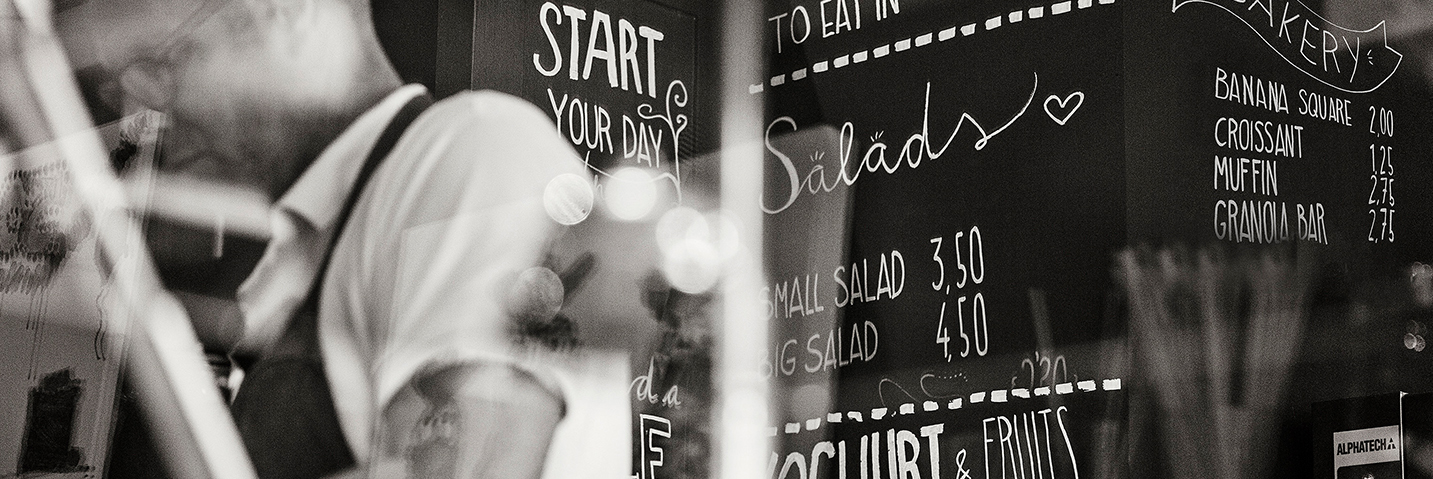 START
YOUR DAY
TO EAT IN
Salads
SMALL SALAD 3,50
BIG SALAD 4,50
& FRUITS
BAKERY
BANANA SQUARE 2,00
CROISSANT 1,25
MUFFIN 2,75
GRANOLA BAR 2,75
ALPHATECH